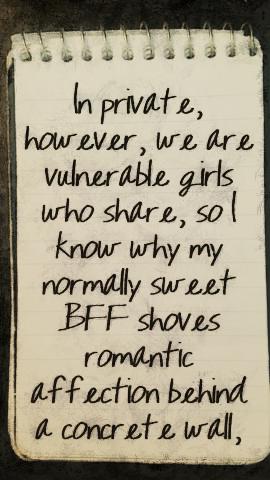 In private,
however, we are
vulnerable girls
who share, so I
know why my
normally sweet
BFF shoves
romantic
affection behind
a concrete wall,